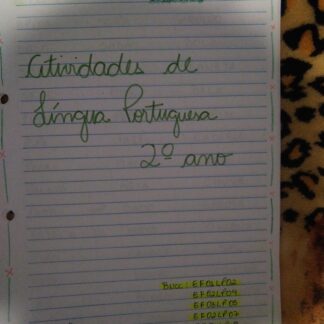 Atividades de
Língua Portuguesa
2º ano
BNCC: EF02LP02
EF02LP04
EF02LP05
EF02LP07